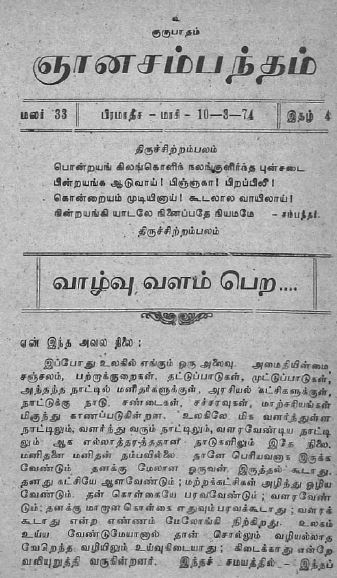 உ
குருபாதம்
ஞானசம்பந்தம்
மலர் 33 பிரமாதீச - மாசி - 10-3-74 இதழ் 4
திருச்சிற்றம்பலம்
பொன்றயங் கிலங்கொளிக் நலங்குளிர்ந்த புன்சடை
பின்றயங்க ஆடுவாய்! பிஞ்ஞகா! பிறப்பிலீ!
கொன்றையம் முடியினாய்! கூடலால வாயிலாய்!
நின்றயங்கி யாடலே நினைப்பதே நியமமே - சம்பந்தர்.
திருச்சிற்றம்பலம்
வாழ்வு வளம் பெற ....
ஏன் இந்த அவல நிலை :
இப்போது உலகில் எங்கும் ஒரு அலைவு. அமைதியின்மை
சஞ்சலம், பற்றுக்குறைகள், தட்டுப்பாடுகள், முட்டுப்பாடுகள்,
அந்தந்த நாட்டில் மனிதர்களுக்குள், அரசியல் கட்சிகளுக்குள்,
நாட்டுக்கு நாடு. சண்டைகள், சச்சரவுகள், மாற்சரியங்கள்
மிகுந்து காணப்படுகின்றன. உலகிலே மிக வளர்ந்துள்ள
நாட்டிலும், வளர்ந்து வரும் நாட்டிலும், வளரவேண்டிய நாட்டி
லும் ஆக எல்லாத்தரத்ததான நாடுகளிலும் இதே நிலை.
மனிதனை மனிதன் நம்பவில்லை. தானே பெரியவனாக இருக்க
வேண்டும். தனக்கு மேலான ஒருவன் இருத்தல் கூடாது.
தனது கட்சியே ஆளவேண்டும்; மற்றக்கட்சிகள் அழிந்து ஒழிய
வேண்டும். தன் கொள்கையே பரவவேண்டும்; வளரவேண்
டும்; தனக்கு மாறான கொள்கை எதுவும் பரவக்கூடாது; வளரக்
கூடாது என்ற எண்ணம் மேலோங்கி நிற்கிறது. உலகம்
உய்ய வேண்டுமேயானால் தான் சொல்லும் வழியல்லாத
வேறெந்த வழியிலும் உய்வுகிடையாது; கிடைக்காது என்றே
வலியுறுத்தி வருகின்றனர். இந்தச் சமயத்தில் - இந்தப்